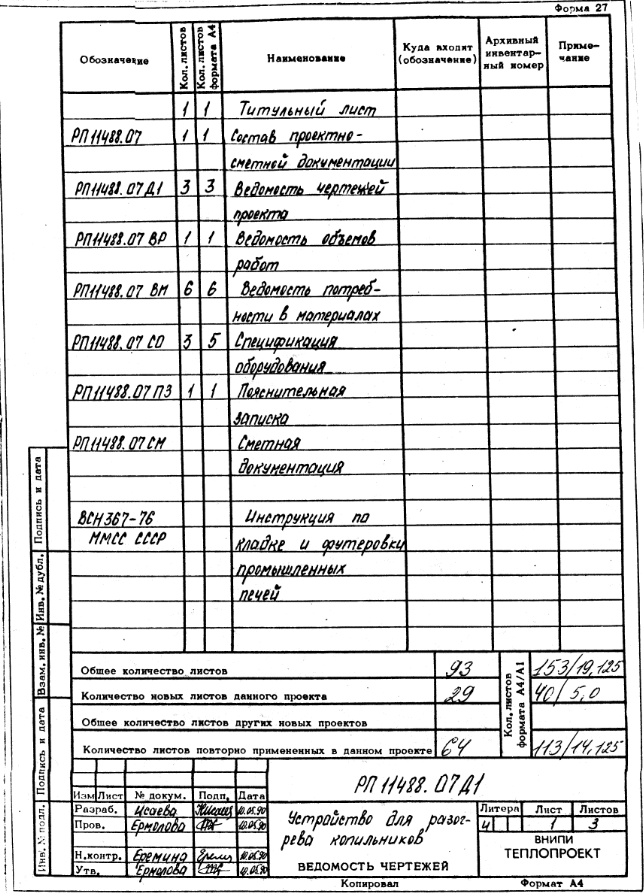 Форма 27
Обозначение Кол. листов Кол. листов формата А4 Наименование Куда входит (обозначение) Архивный инвентарный номер Примечание
1 1 Титульный лист
РП 11488.07 1 1 Состав проектно-
сметной документации
РП 11488.07 Д1 3 3 Ведомость чертежей
проекта
РП 11488.07 ВР 1 1 Ведомость объемов
работ
РП 11488.07 ВМ 6 6 Ведомость потреб-
ности в материалах
РП 11488.07 СО 3 5 Спецификация
оборудования
РП 11488.07 ПЗ 1 1 Пояснительная
записка
РП 11488.07 СМ Сметная
документация
ВСН 367-76 Инструкция по
ММСС СССР кладке и футеровки
промышленных
печей
Общее количество листов 93 Кол. листов формата А4/А1 153/19,125
Количество новых листов данного проекта 29 40/5,0
Общее количество листов других новых проектов
Количество листов повторно примененных в данном проекте 64 113/14,125
РП 11488.07Д1
Изм Лист № докум. Подп. Дата
Разраб. Исаева 10.05.90
Пров. Ермолова 10.05.90
Н.контр. Еремина 10.05.90
Утв. Ермолова 10.05.90
Устройство для разог-
рева копильников
ВЕДОМОСТЬ ЧЕРТЕЖЕЙ
Литера Лист Листов
И 1 3
ВНИПИ
ТЕПЛОПРОЕКТ
Копировал Формат А4
Инв. № подл. Подпись и дата Взам. инв. № Инв. № дубл. Подпись и дата